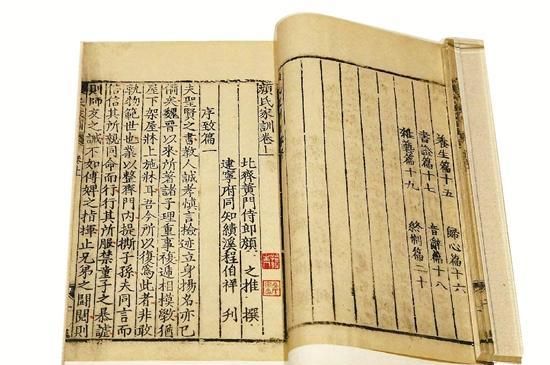 養生篇十五 歸心篇十六
書證篇十七 音辭篇十八
雜藝篇十九 終制篇二十
顔氏家訓卷上
北齊黃門侍郎顔 之推 撰
建寧府同知績溪程伯祥 刊
序致篇一
夫聖賢之書教人誠孝慎言檢迹立身揚名亦已
備矣魏晉以來所著諸子理重事複遞相模斆猶
屋下架屋牀上施牀耳吾今所以復爲此者非敢
軌物範世也業以整齊門內提撕子孫夫同言而
信信其所親同命而行行其所服禁童子之暴謔
則師友之誡不如傅婢之指揮止兄弟之鬪鬩則